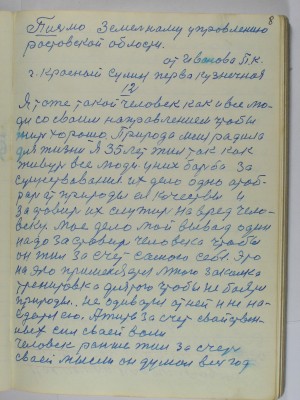 8
Письмо Земельному управлению
ростовской области.
от Иванова П.К.
г. Красный Сулин перва кузничная
12
Я тоте такой человек как и все лю-
ди со своим направлением чтобы
жить хорошо. Природа меня радила
для жизни Я 35 лет жил так как
живут все люди у них борба за
существование их дело одно
природы ея качествы и
их служит на вред чело-
веку. Мое дело мой вывод один
надо человека чтобы
он жил за счет самого себя. Это
на это много закалка
тренировка доброго чтобы не бояться
природы. не от ней и не на-
её. А жить за счет свойствен-
ных сил своей воли
Человек раньше жил за счет
своей мысли он думал